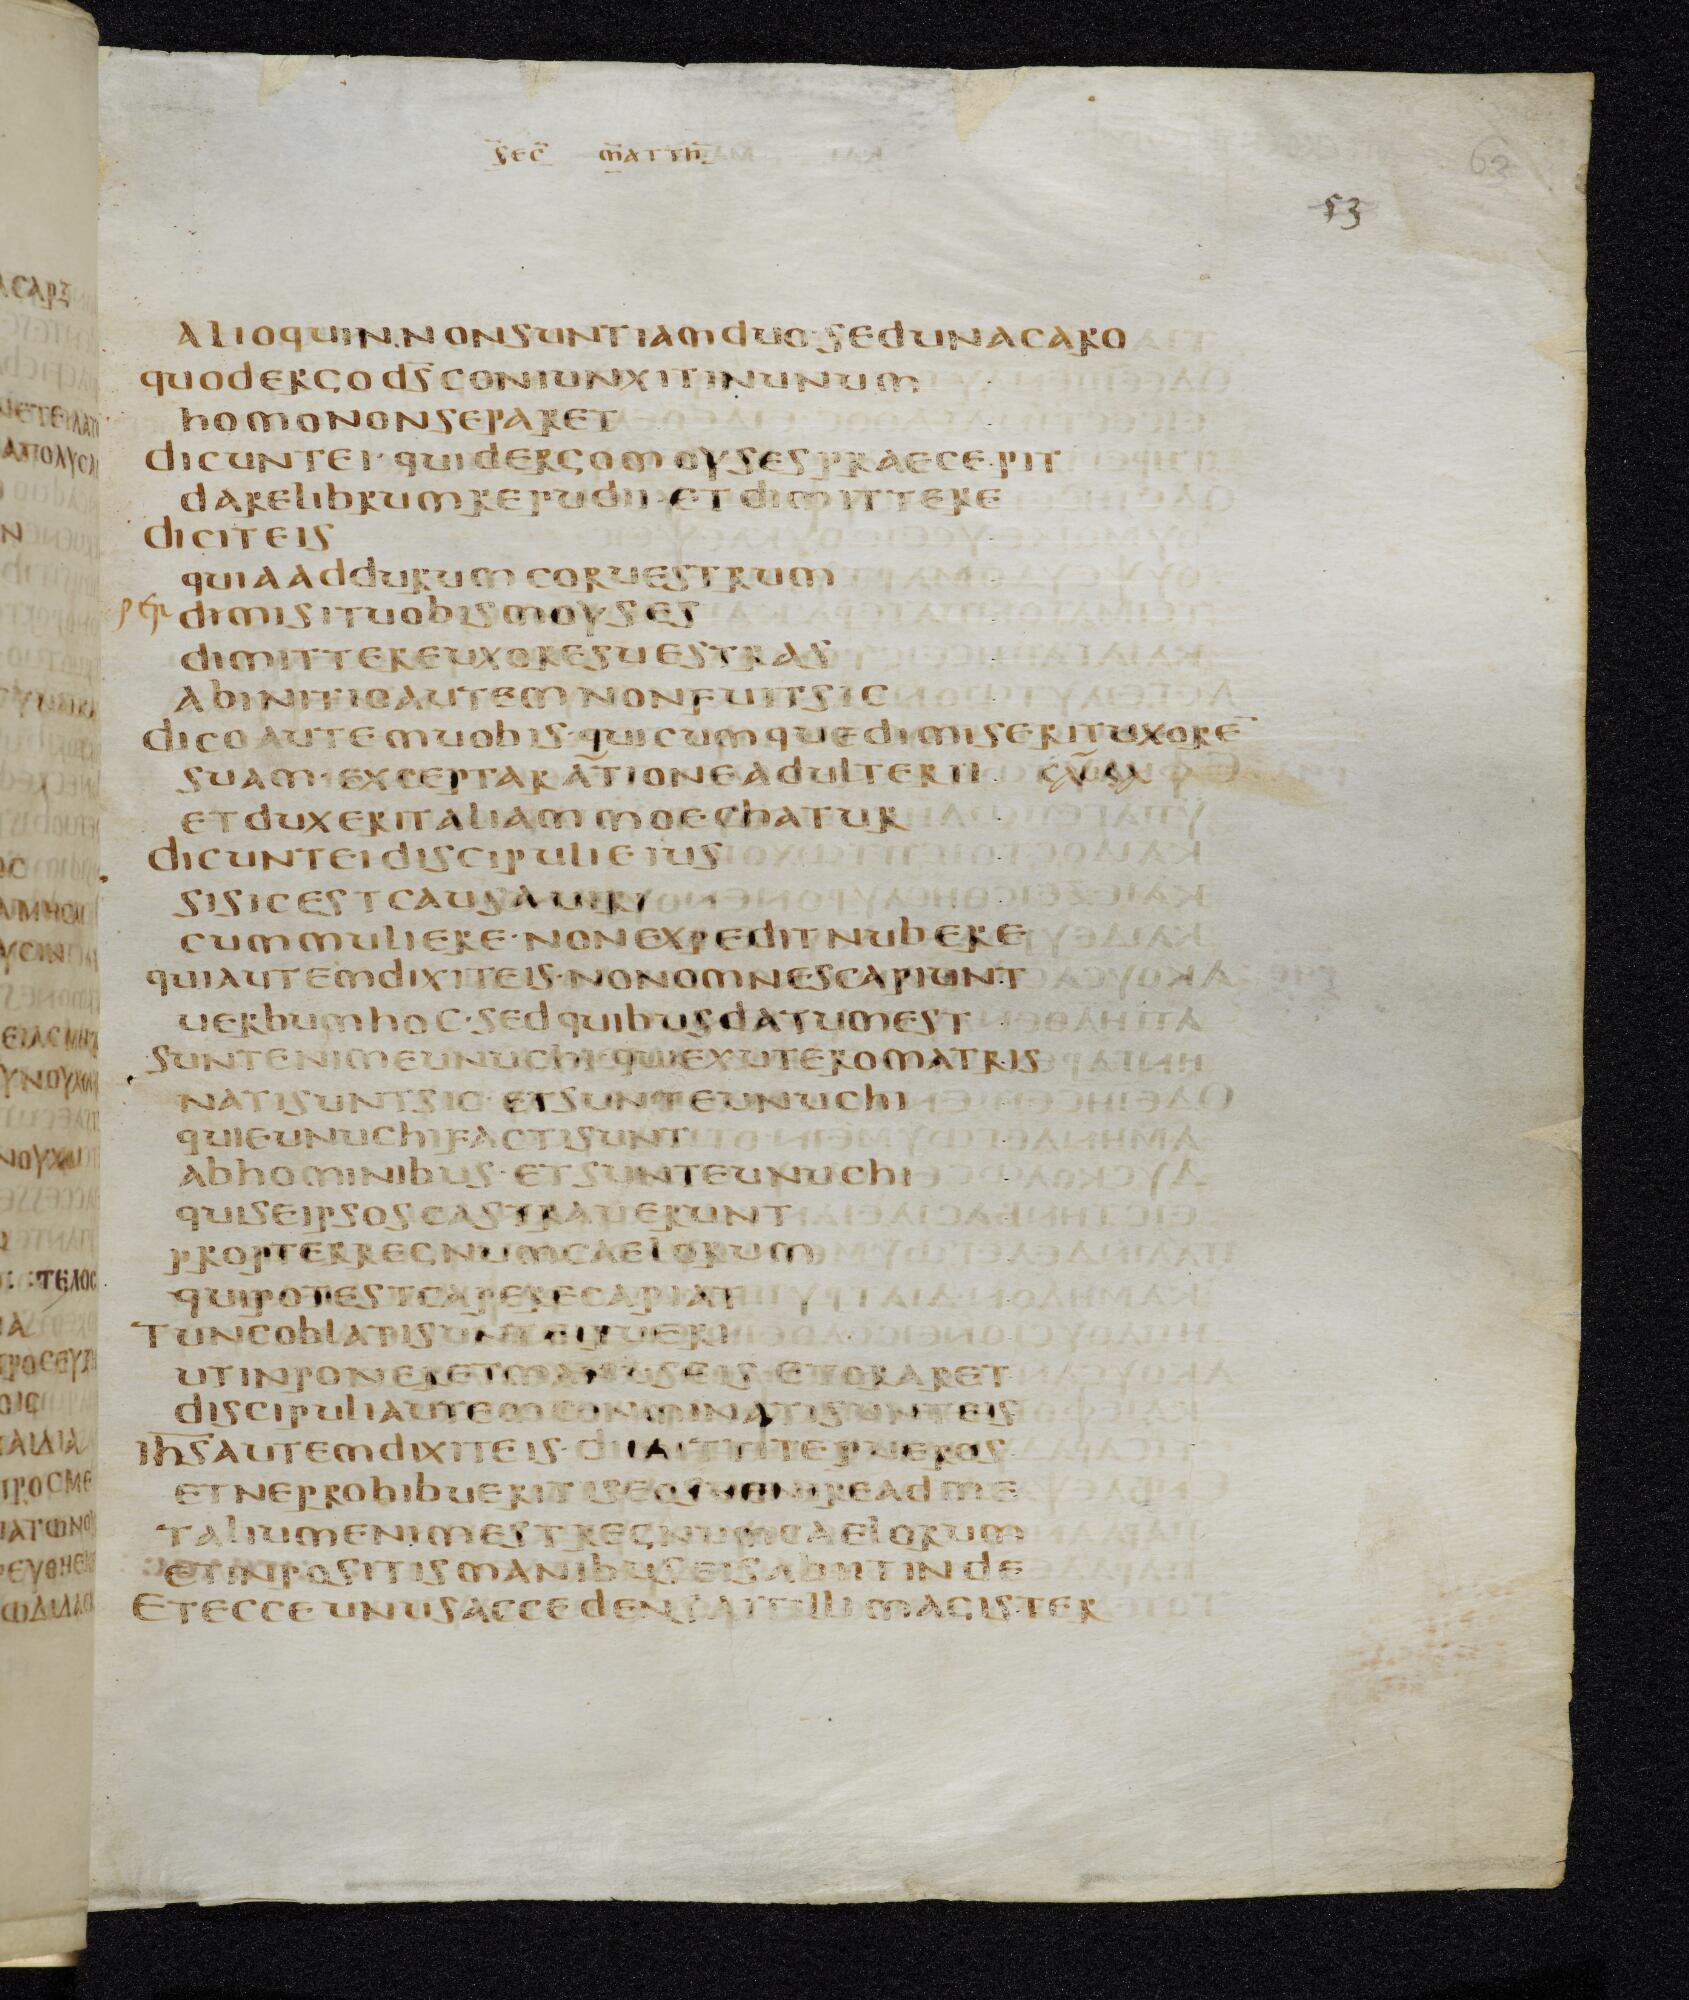 sec̅ m̅atth̅
63
53
alioquin non sunt iam duo · sed una caro
quod ergo d̅s̅ coniunxit in unum
homo non separet
dicunt ei · quid ergo moyses praecepit
dare librum repudii · et dimittere
dicit eis
quia ad durum cor uestrum
dimisit uobis moyses
dimittere uxores uestras
ab initio autem non fuit sic
dico autem uobis · quicumque dimiserit uxore̅
suam · excepta ratione adulterii
et duxerit aliam moechatur
dicunt ei discipuli eius
si sic est causa uiri
cum muliere · non expedit nubere
qui autem dixit eis · non omnes capiunt
uerbum hoc · sed quibus datum est
sunt enim eunuchi · qui ex utero matris
nati sunt sic · et sunt eunuchi
qui eunuchi facti sunt
ab hominibus · et sunt eunuchi
qui se ipsos castrauerunt
propter regnum caelorum
qui potest capere capiat
Tunc oblati sunt ei pueri
ut inponeret manus eis · et oraret
discipuli autem conminati sunt eis
ih̅s̅ autem dixit eis · pueros
et ne prohibueritis eos uenire ad me
talium enim est regnum caelorum
et inpositis manibus eis abiit inde
Et ecce unus accedens ait illi magister